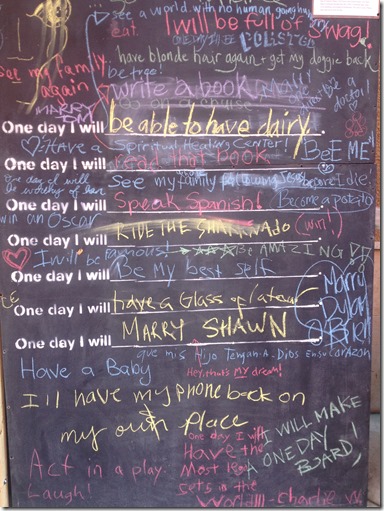 see a world with no human going hungry
eat.
I will be full of swag!
have blonde hair again + got my doggie back
be free!
See my family
again
write a book
be a
doctor!
MARRY
One day I will be able to have dairy.
HAVE A Spiritual Healing Center!
BE ME"
One day I will read that book.
One day I will
See my family
before I die
One day I will Speak Spanish!
Become a potato
win an Oscar
One day I will RIDE THE SHARKNADO (win!)
I will be famous!
BE AMAZING!
One day I will Be My best self.
One day I will have a Glass of
Marry
Dylan
O'Brien
One day I will MARRY SHAWN.
que mis Hijo Tengan A Dios En su corazon
Have a Baby
Hey, that's my dream!
I'll have my phone back on
&
my own place
One day I will
Have the
Most lego
sets in the
World!!! - Charlie W
I WILL MAKE
A ONE DAY
BOARD!
Act in a play.
Laugh!